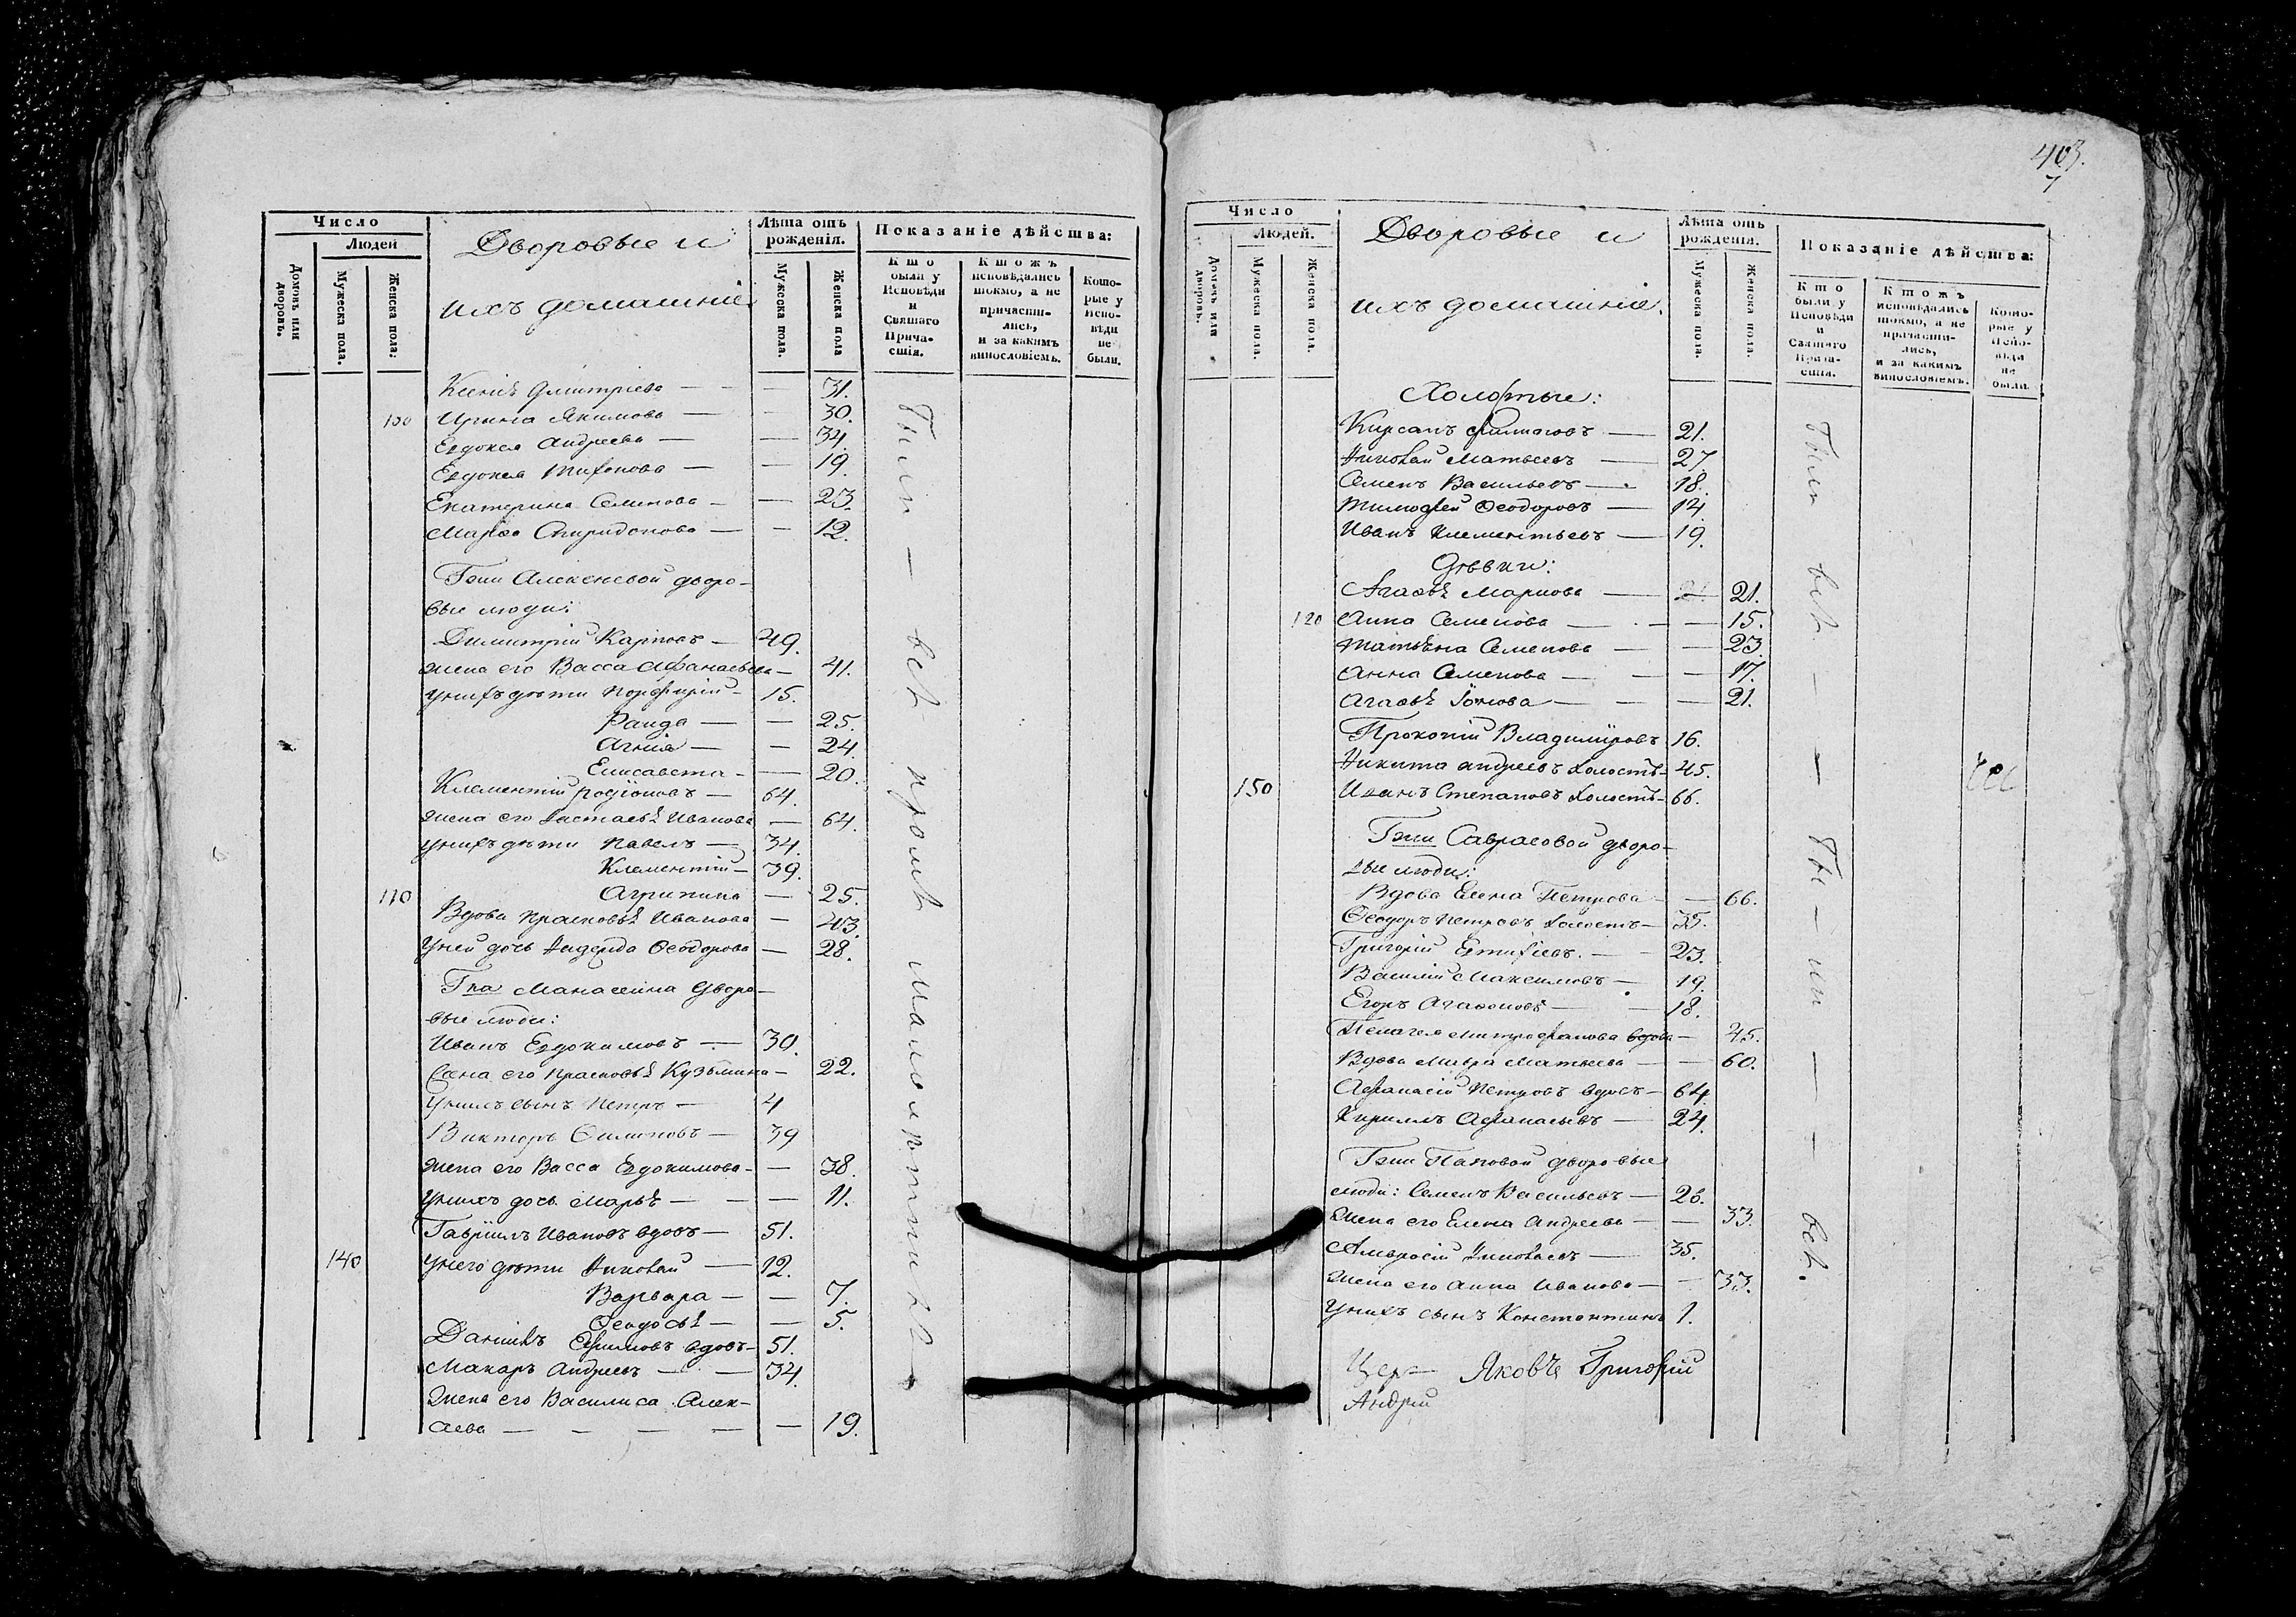 Число
Людей
Домовъ или дворовъ.
Мужеска пола.
Женска пола.
Дворовые и
ихъ домашнiе
Лѣта отъ рожденія.
Мужеска пола.
Женска пола
Показаніе дѣйства:
Кто были у Исповѣди и Святаго Причастія.
Ктожъ исповѣдались токмо, а не причастились, и за какимъ винословіемъ.
Которые у Исповѣди не были.
Ксенiѣ Дмитрiева — — 31.
Ирина Якимова — — 30.
Евдокея Андреева — — 34.
Евдокея Тихонова — — 19.
Екатерина Семенова — — 23.
Марѳа Спиридонова — — 12.
Гжи Алексеевой дворо-
вые люди:
Димитрій Карповъ — 49.
жена его Васса Афанасьева — 41.
у нихъ дѣти Порфирій — 15.
Раида — — 25.
Агнія — — 24.
Елисавета — — 20.
Клементій Родіоновъ — 64.
жена его Настасьѣ Иванова — 64.
у нихъ дѣти Павелъ — 34.
Клементій — 39.
110 Агрипина — 25.
Вдова Прасковьѣ Иванова — 43.
у ней дочь Надежда Ѳеодорова — 28.
Гна Манасеина дворо-
вые люди:
Иванъ Евдокимовъ — 30.
Жена его Прасковьѣ Кузьмина — 22.
у нихъ сынъ Петръ — 4
Викторъ Филиповъ — 39
жена его Васса Евдокимова — — 38.
у нихъ дочь Марьѣ — — — 11.
Гавріилъ Ивановъ вдовъ — 51.
140 у него дѣти Николай — 12.
Варвара — — 7.
Ѳеодосьѣ — — 5.
Даніилъ Ефимовъ вдовъ — 51.
Макаръ Андреевъ — — 34.
Жена его Василиса Алек-
аева — — — — — 19.
Были — всѣ кромѣ малолѣтнихъ
403.
Число
Людей.
Домовъ или дворовъ.
Мужеска пола.
Женска пола.
Дворовые и
ихъ домашнiе.
Лѣта отъ рожденія.
Мужеска пола.
Женска пола.
Показаніе дѣйства:
Кто были у Исповѣди и Святаго Причастія.
Ктожъ исповѣдались токмо, а не причастились, и за какимъ винословіемъ.
Которые у Исповѣди не были
Холостые:
Кирсанъ — 21.
Николай Матвеевъ — 27.
Семенъ Васильевъ — 18.
Тимофей Ѳеодоровъ — 14.
Иванъ Клементьевъ — 19.
Дѣвки:
Агафьѣ Маркова — 21.
120 Анна Семенова — — — 15.
Татьяна Семенова — — 23.
Анна Семенова — — — 17.
Агафьѣ Іонова — — — 21.
Прокопій Владиміровъ 16.
Никита Андреевъ холостъ — 45.
150 Иванъ Степановъ холостъ — 66.
Гжи Саврасовой дворо-
вые люди:
Вдова Елена Петрова — 66.
Ѳеодоръ Петровъ холостъ — 35.
Григорій Евтихіевъ. — — 23.
Василій Максимовъ — 19.
Егоръ Агафоновъ — — 18.
Пелагея Митрофанова вдова — 45.
Вдова Мавра Матвеева — — 60.
Афанасій Петровъ вдовъ — 64.
Кириллъ Афанасьевъ — 24.
Гжи Пановой дворовые
люди: Семенъ Васильевъ — 26.
Жена его Елена Андреева — — 33.
Амвросій Николаевъ — 35.
Жена его Анна Иванова — — 33.
у нихъ сынъ Константинъ 1.
Яковъ Григорій
Андрей
Были всѣ — — Бы — ли — — — всѣ.